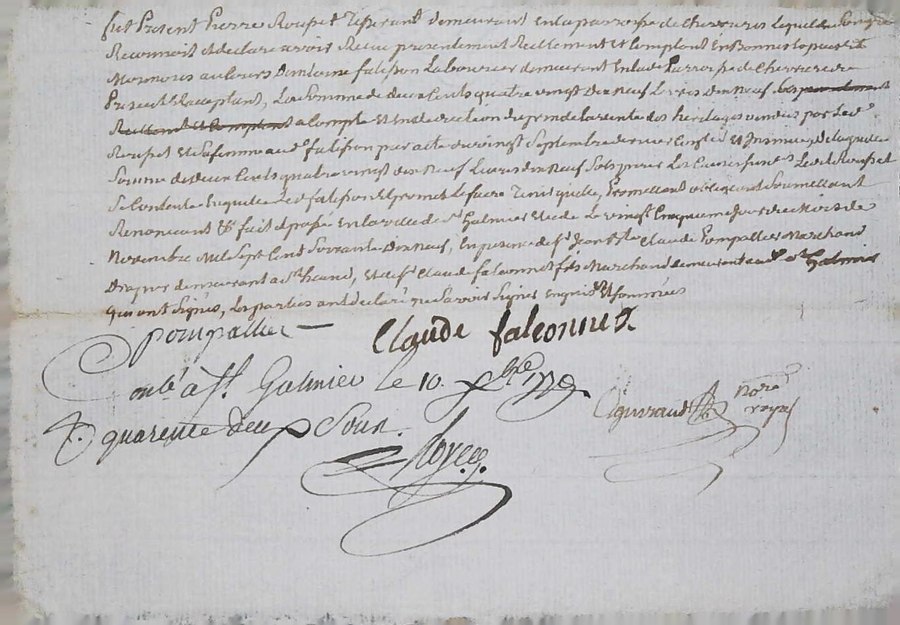 fut Present Pierre Rouset Tisserant demeurant en la parroisse de Chevrieres Lequel de Son gre
Reconnoit et declare avoir Reçu presentement Reellement et Comptant En Bonnes Especes
Monnoies au Cours Laboureur demeurant En lad. Parroisse de Chevrieres
Present et acceptant, La Somme de deux Cents quatre vingt dix neuf Livres dix neuf
a Compte et En deduction du prix de la vente des heritages vendus par Led.
Rouset et Sa femme aud. falisson par acte du vingt Septembre dernier et Insinué De laquelle
Somme de deux Cents quatre vingt dix neuf Livres dix neuf Sols Led. Rouset
Se Contente En quitte Led. falisson et promet Le faire Tenir quitte, Promettant obligeant Soumettant
Renonçant &c fait et passé En la ville de St. Galmier Etude Le vingt Cinquieme Jour du Mois de
Novembre Mil Sept Cent Soixante dix neuf, En presence de Sr. Claude Pompallier Marchand
Drapier demeurant a St. heand, et de Sr. Claude falconnet fils Marchand demeurant aud. St. Galmier
qui ont Signés, Les parties ont declaré ne Savoir Signer Enquis et Sommées
Pompallier Claude falconnet
à St. Galmier le 10. xbre 1779
R. quarente deux Sous.
nore royal